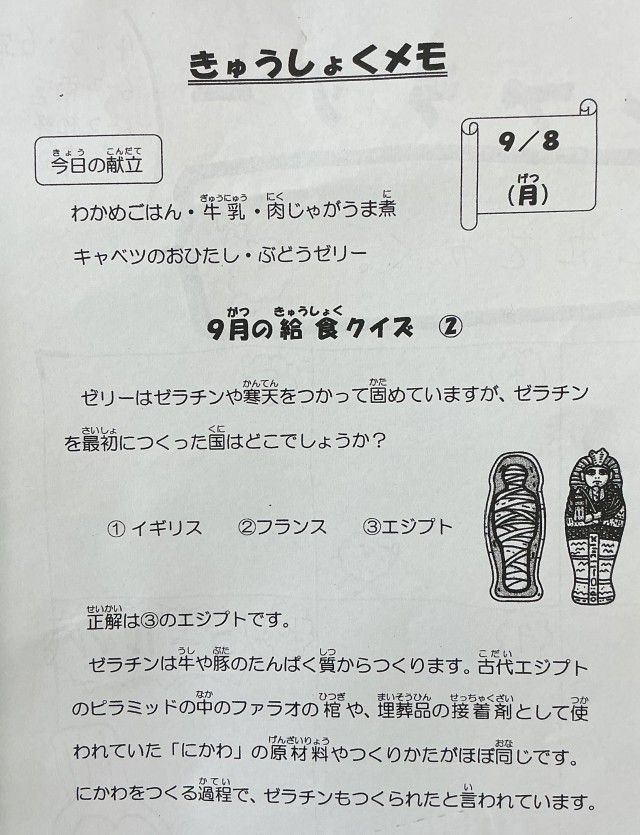 きゅうしょくメモ
今日の献立
9/8
(月)
わかめごはん・牛乳・肉じゃがうま煮
キャベツのおひたし・ぶどうゼリー
9月の給食クイズ ②
ゼリーはゼラチンや寒天をつかって固めていますが、ゼラチン
を最初につくった国はどこでしょうか？
① イギリス ②フランス ③エジプト
正解は③のエジプトです。
ゼラチンは牛や豚のたんぱく質からつくります。古代エジプト
のピラミッドの中のファラオの棺や、埋葬品の接着剤として使
われていた「にかわ」の原材料やつくりかたがほぼ同じです。
にかわをつくる過程で、ゼラチンもつくられたと言われています。